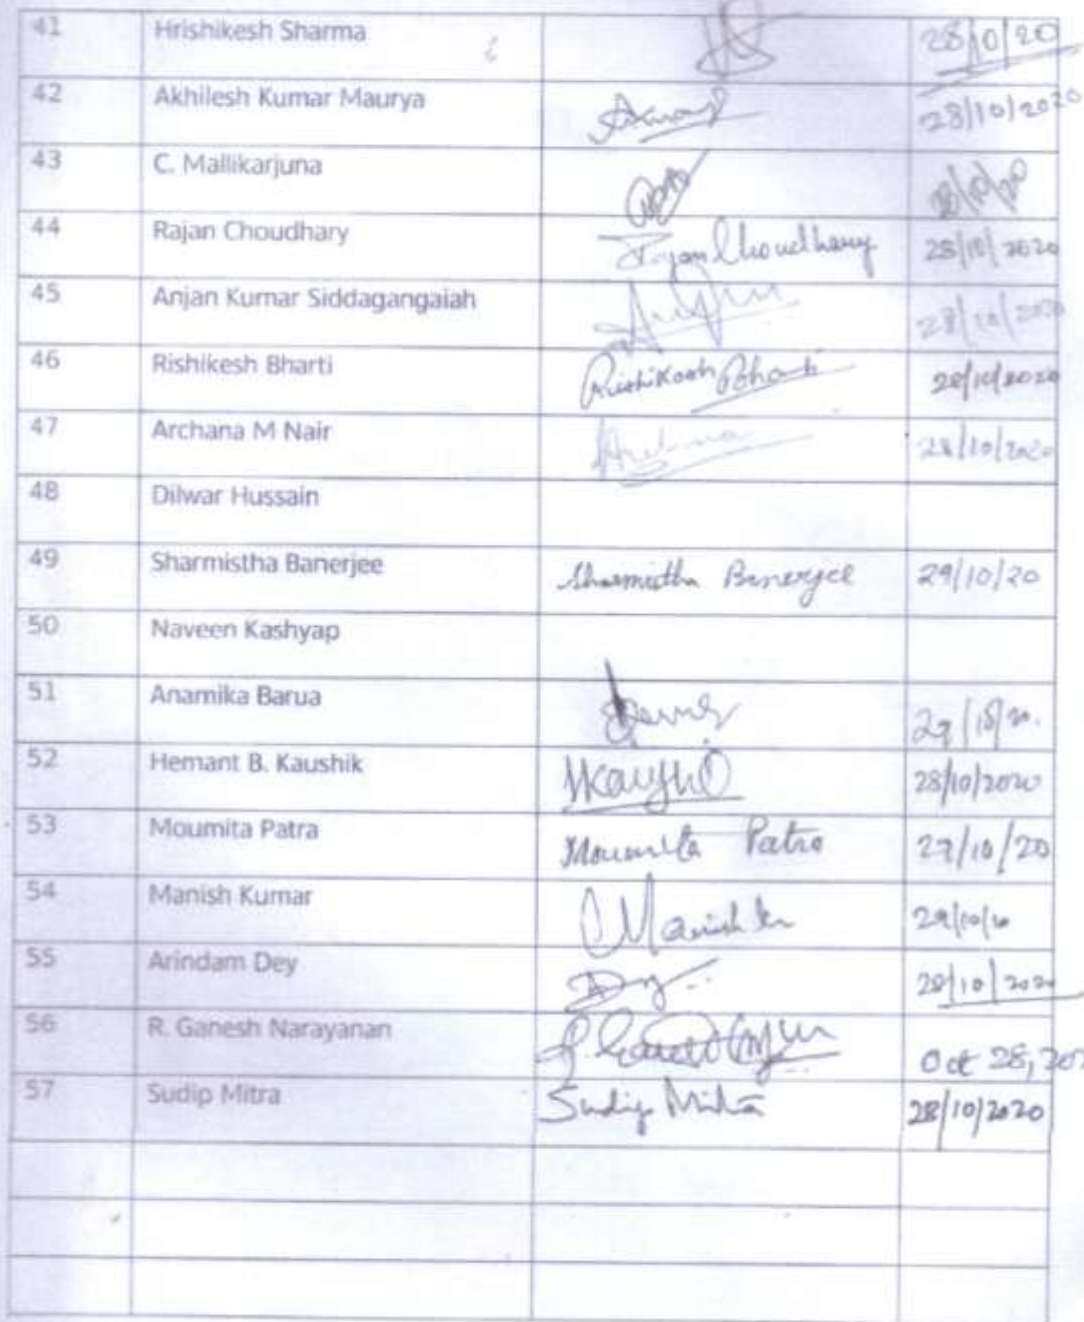 41 Hrishikesh Sharma 28/10/20
42 Akhilesh Kumar Maurya 28/10/2020
43 C. Mallikarjuna 28/10/20
44 Rajan Choudhary Rajan Choudhary 28/10/2020
45 Anjan Kumar Siddagangaiah 28/10/2020
46 Rishikesh Bharti Rishikesh Bharti 28/10/2020
47 Archana M Nair Archana 28/10/2020
48 Dilwar Hussain
49 Sharmistha Banerjee Sharmistha Banerjee 29/10/20
50 Naveen Kashyap
51 Anamika Barua
52 Hemant B. Kaushik 28/10/2020
53 Moumita Patra Moumita Patra 27/10/20
54 Manish Kumar Manish Kr
55 Arindam Dey Dey 28/10/2020
56 R. Ganesh Narayanan Oct 28,
57 Sudip Mitra Sudip Mitra 28/10/2020